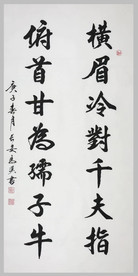 橫眉冷對千夫指
俯首甘為孺子牛
庚子春月